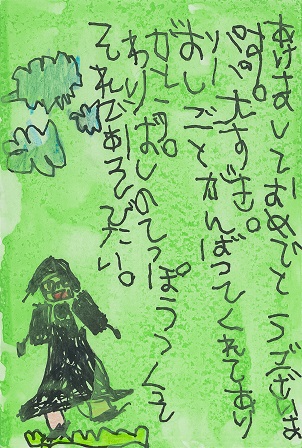 あけましておめでとうございま
す。
パパ大すき。
おしごとがんばってくれてあり
がとう。
わりばしのてっぽうつくって
それであそびたい。